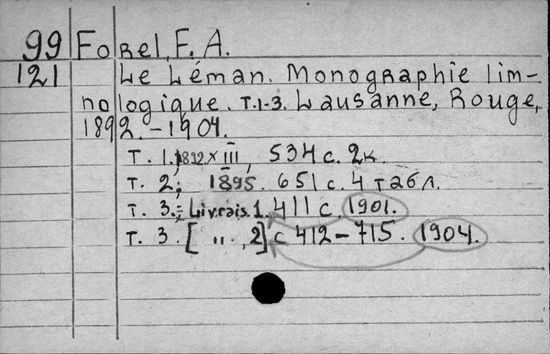 99 Forel, F. A.
121 Le Léman. Monographie lim-
nologique. T. 1-3. Lausanne, Rouge,
1892. - 1904.
T. 1. 1892 XIII, 534 c. 2 к.
T. 2; 1895. 651 c. 4 табл.
T. 3.; Livrais. 1. 411 c. 1901.
T. 3. [ " , 2] c 412 - 715. 1904.